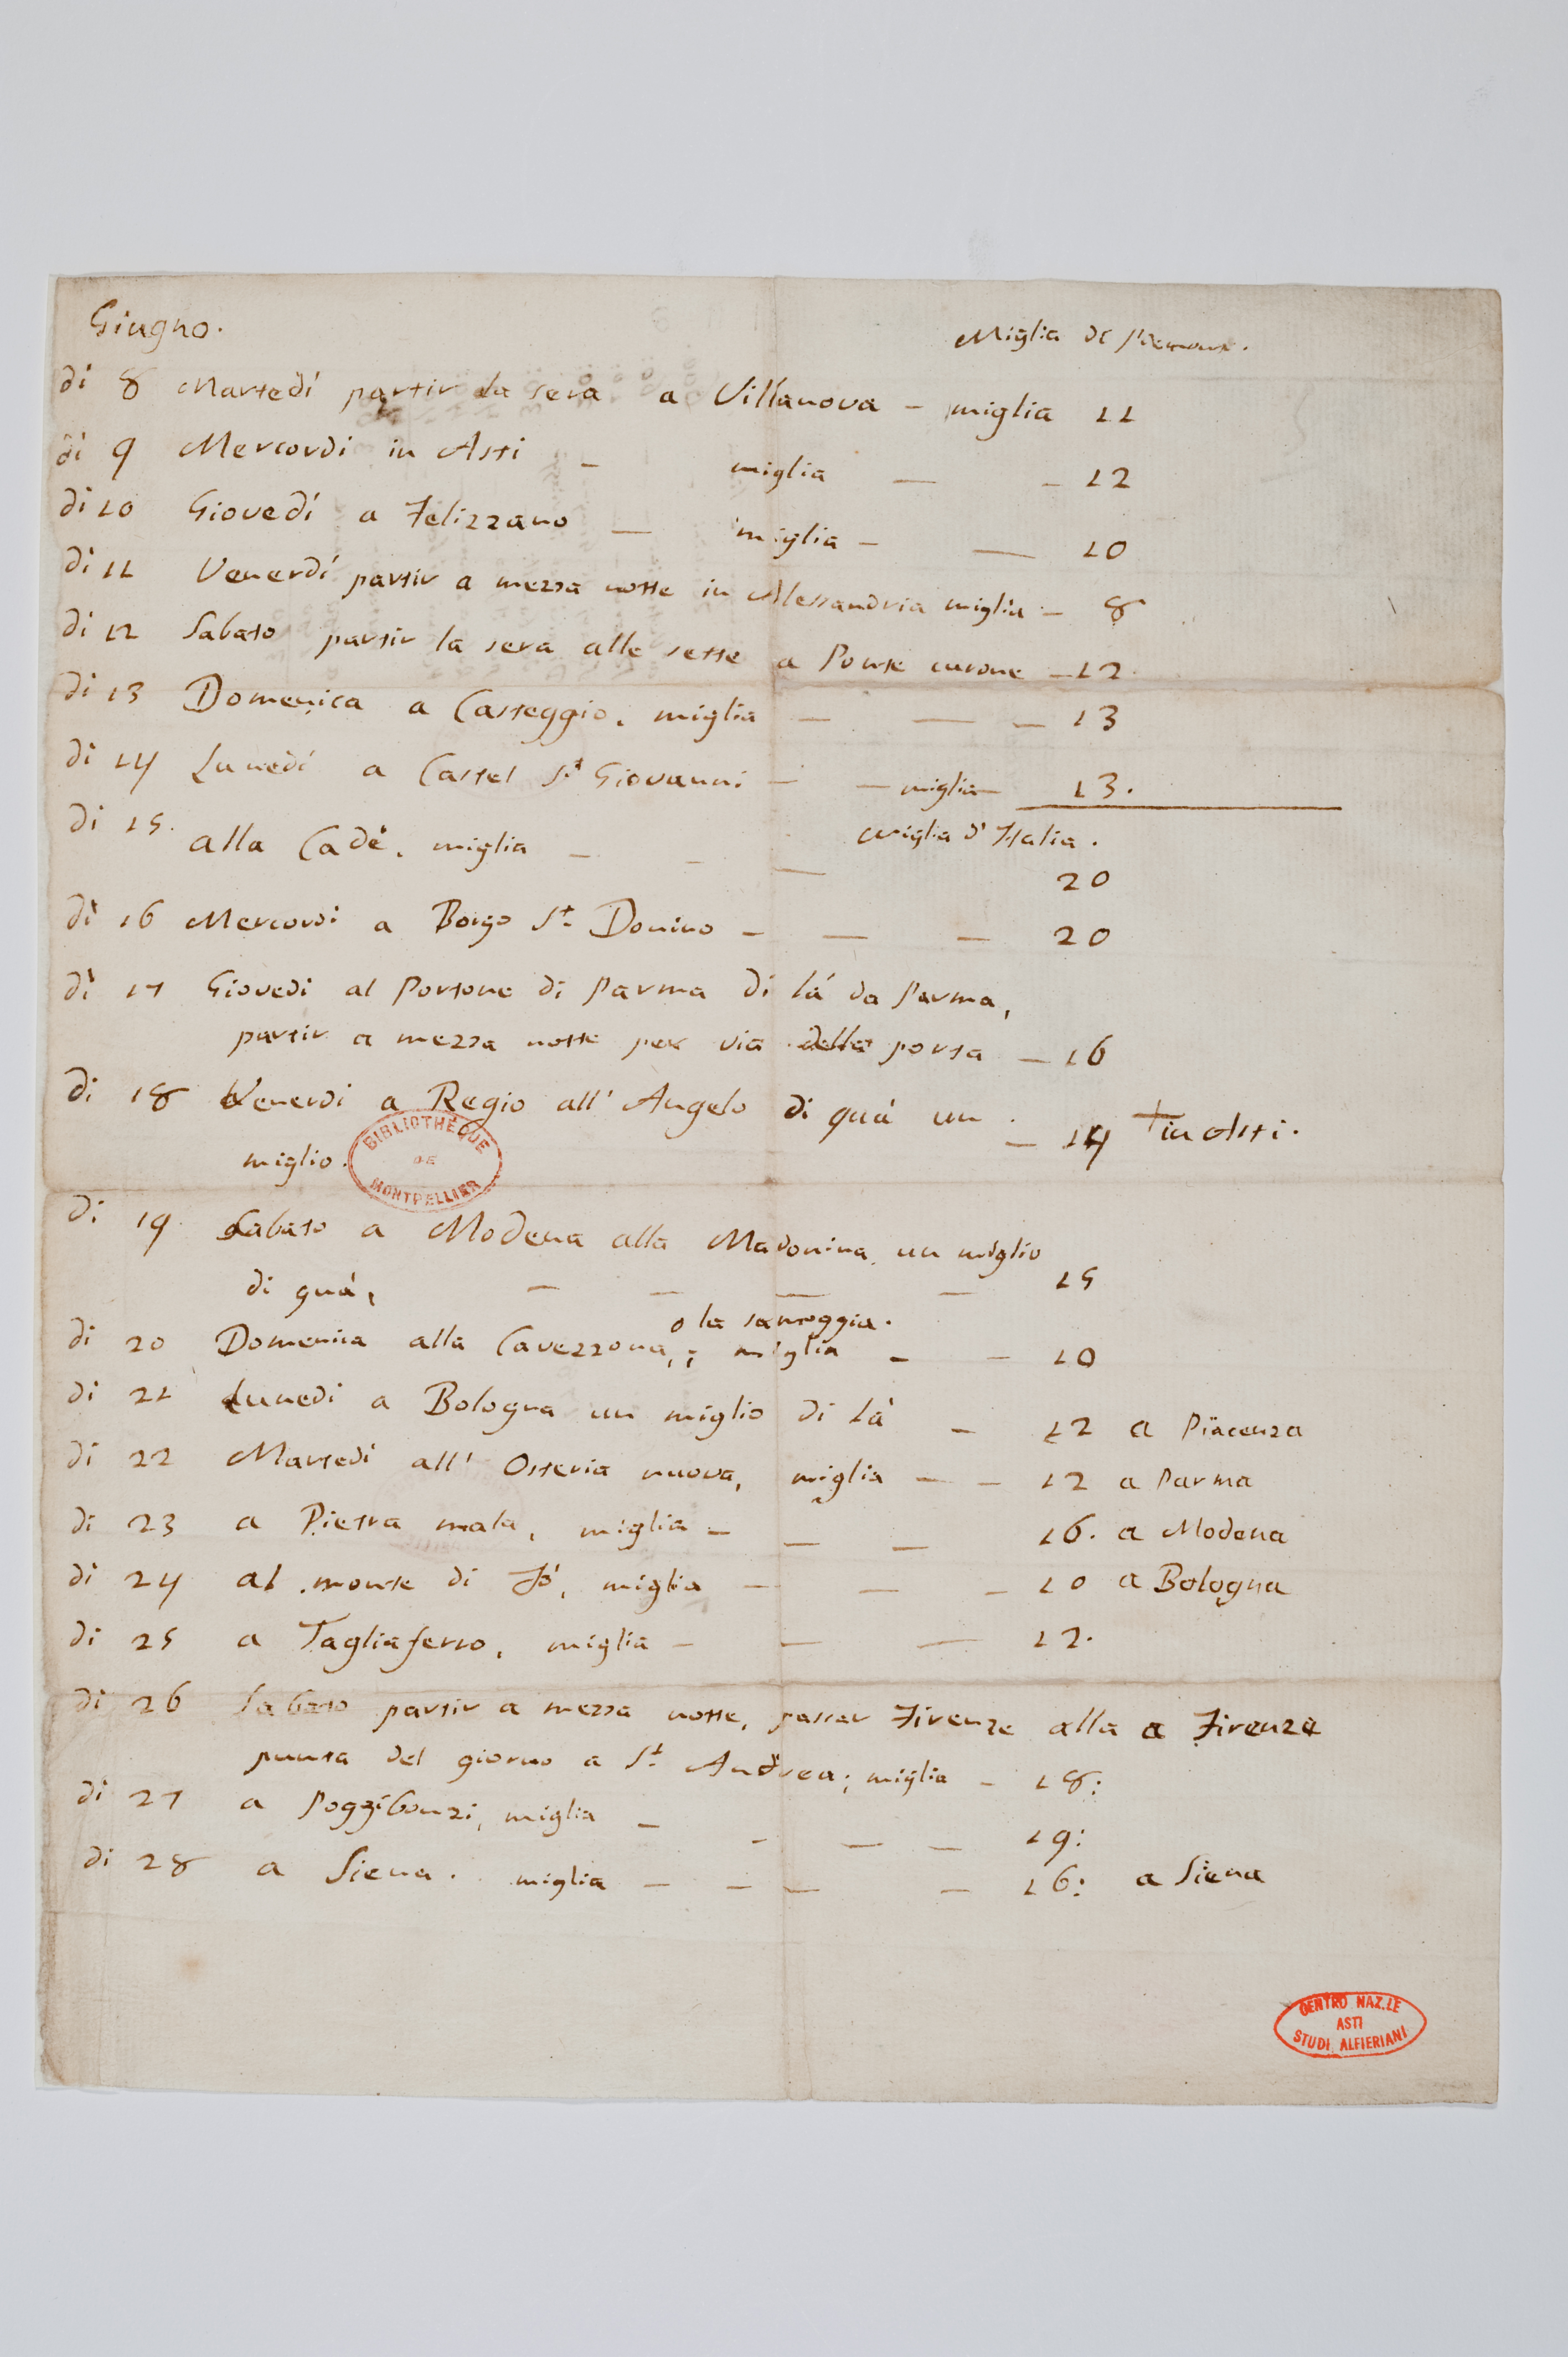 Giugno.
Miglia di Piemonte.
di 8 Martedí partir la sera a Villanova - miglia 11
di 9 Mercordi in Asti - miglia — - 12
di 10 Giovedí a Felizzano — miglia - — 10
di 11 Venerdí partir a mezza notte in Alessandria miglia - 8
di 12 Sabato partir la sera alle sette a Ponte curone - 12.
di 13 Domenica a Casteggio. miglia — — - 13
di 14 Lunedí a Castel St Giovanni - - miglia - 13.
miglia d'Italia.
di 15. alla Cadè. miglia — - — 20
di 16 Mercordi a Borgo St. Donino - — - 20
di 17 Giovedi al Portone di Parma di lá da Parma,
partir a mezza notte per via della porta - 16
di 18 Venerdi a Regio all' Angelo di quá un - 14 + in Asti.
miglio.
BIBLIOTHÈQUE DE MONTPELLIER
di 19 Sabato a Modena alla Madonina un miglio
di quá, - - — - 15
o la samoggia.
di 20 Domenica alla Cavezzona,; miglia - - 10
di 21 Lunedi a Bologna un miglio di Lá - 12 a Piacenza
di 22 Martedi all' Osteria nuova, miglia - - 12 a Parma
di 23 a Pietra mala, miglia - — — 16. a Modena
di 24 al monte di Fó, miglia - — - 10 a Bologna
di 25 a Tagliaferro, miglia - — — 12.
di 26 Sabato partir a mezza notte, passar Firenze alla a Firenze
punta del giorno a St. Andrea; miglia - 18:
di 27 a Poggibonzi, miglia - - — - 19:
di 28 a Siena. miglia - - — - 16: a Siena
CENTRO NAZ.LE
ASTI
STUDI ALFIERIANI